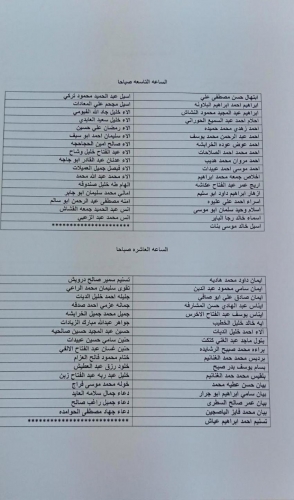 الساعه التاسعه صباحا
ابتهال حسن مصطفى علي
اسيل عبد الحميد محمود تركي
ابراهيم احمد ابراهيم البلاونه
اسيل محمد علي المعادات
ابراهيم عبد المجيد محمود النشاش
الاء خليل جاد الله القيومي
احلام احمد عبد السميع الحوراني
الاء خليل سعيد العابدي
احمد زهدي محمد حميده
الاء رمضان علي حسين
احمد عبد الرحمن محمد يوسف
الاء سليمان احمد ابو سيف
احمد عوض عوده الخرابشه
الاء صالح امين الحجاحجه
احمد محمد احمد الصلاحات
الاء عبد الفتاح خليل وشاح
احمد مروان محمد هديب
الاء عدنان عبد القادر ابو جاجه
احمد موسى احمد عبيدات
الاء فيصل جميل العميلات
اخلاص جمعه محمد ابراهيم
الاء محمد عبد الله محمد
اريج عمر عبد الفتاح عكاشه
الهام طه خليل صندوقه
ازهار ابراهيم داود ابو سليم
اماني محمد سليمان ابو جابر
اسراء احمد علي عليوه
امنه مصطفى عبد الرحمن ابو سالم
اسلام وحيد سلمان ابو موسى
انس عبد الحميد جمعه القشاش
اسماء خالد رجا البابر
انس محمد عبد الزعبي
اسيل خالد موسى بنات
********************
الساعه العاشره صباحا
ايمان داود محمد هاديه
تسنيم سمير صالح درويش
ايمان سامي محمود عبد الدين
تقوى سليمان محمد الراعي
ايمان صادق علي ابو صافي
جنيله احمد خليل الديات
ايناس عبد الهادي حسن المشارفه
جمانه عزمي احمد صدقه
ايناس يوسف عبد الفتاح الاخرس
جميل محمد جميل الخرابشه
ايه خالد خليل الخطيب
جواهر عبدالله مبارك الزيادات
الاء احمد خليل الديات
حسين عبد المجيد حسين صالحيه
بتول ماجد عبد الغني كتكت
حنين سامي حسين عبيدات
براءه محمد صبيح الرشايده
حنين غسان عبد الفتاح الالفي
برديس محمد حمد الغنانيم
ختام محمود فالح العزام
بسام يوسف بدر صبيح
خلود رزق عبد العطيش
بلقيس محمد حمد الغنانيم
خليل عبد ربه عبد الفتاح زين
بيان حسن عطيه محمد
خوله محمد موسى فراج
بيان سامي ابراهيم ابو جرار
دعاء جمال سلامه العايد
بيان عمر صالح السطري
دعاء جميل راغب صالح
بيان محمد فايز الياصجين
دعاء جهاد مصطفى الحوامده
بتول احمد ابراهيم عياش
********************